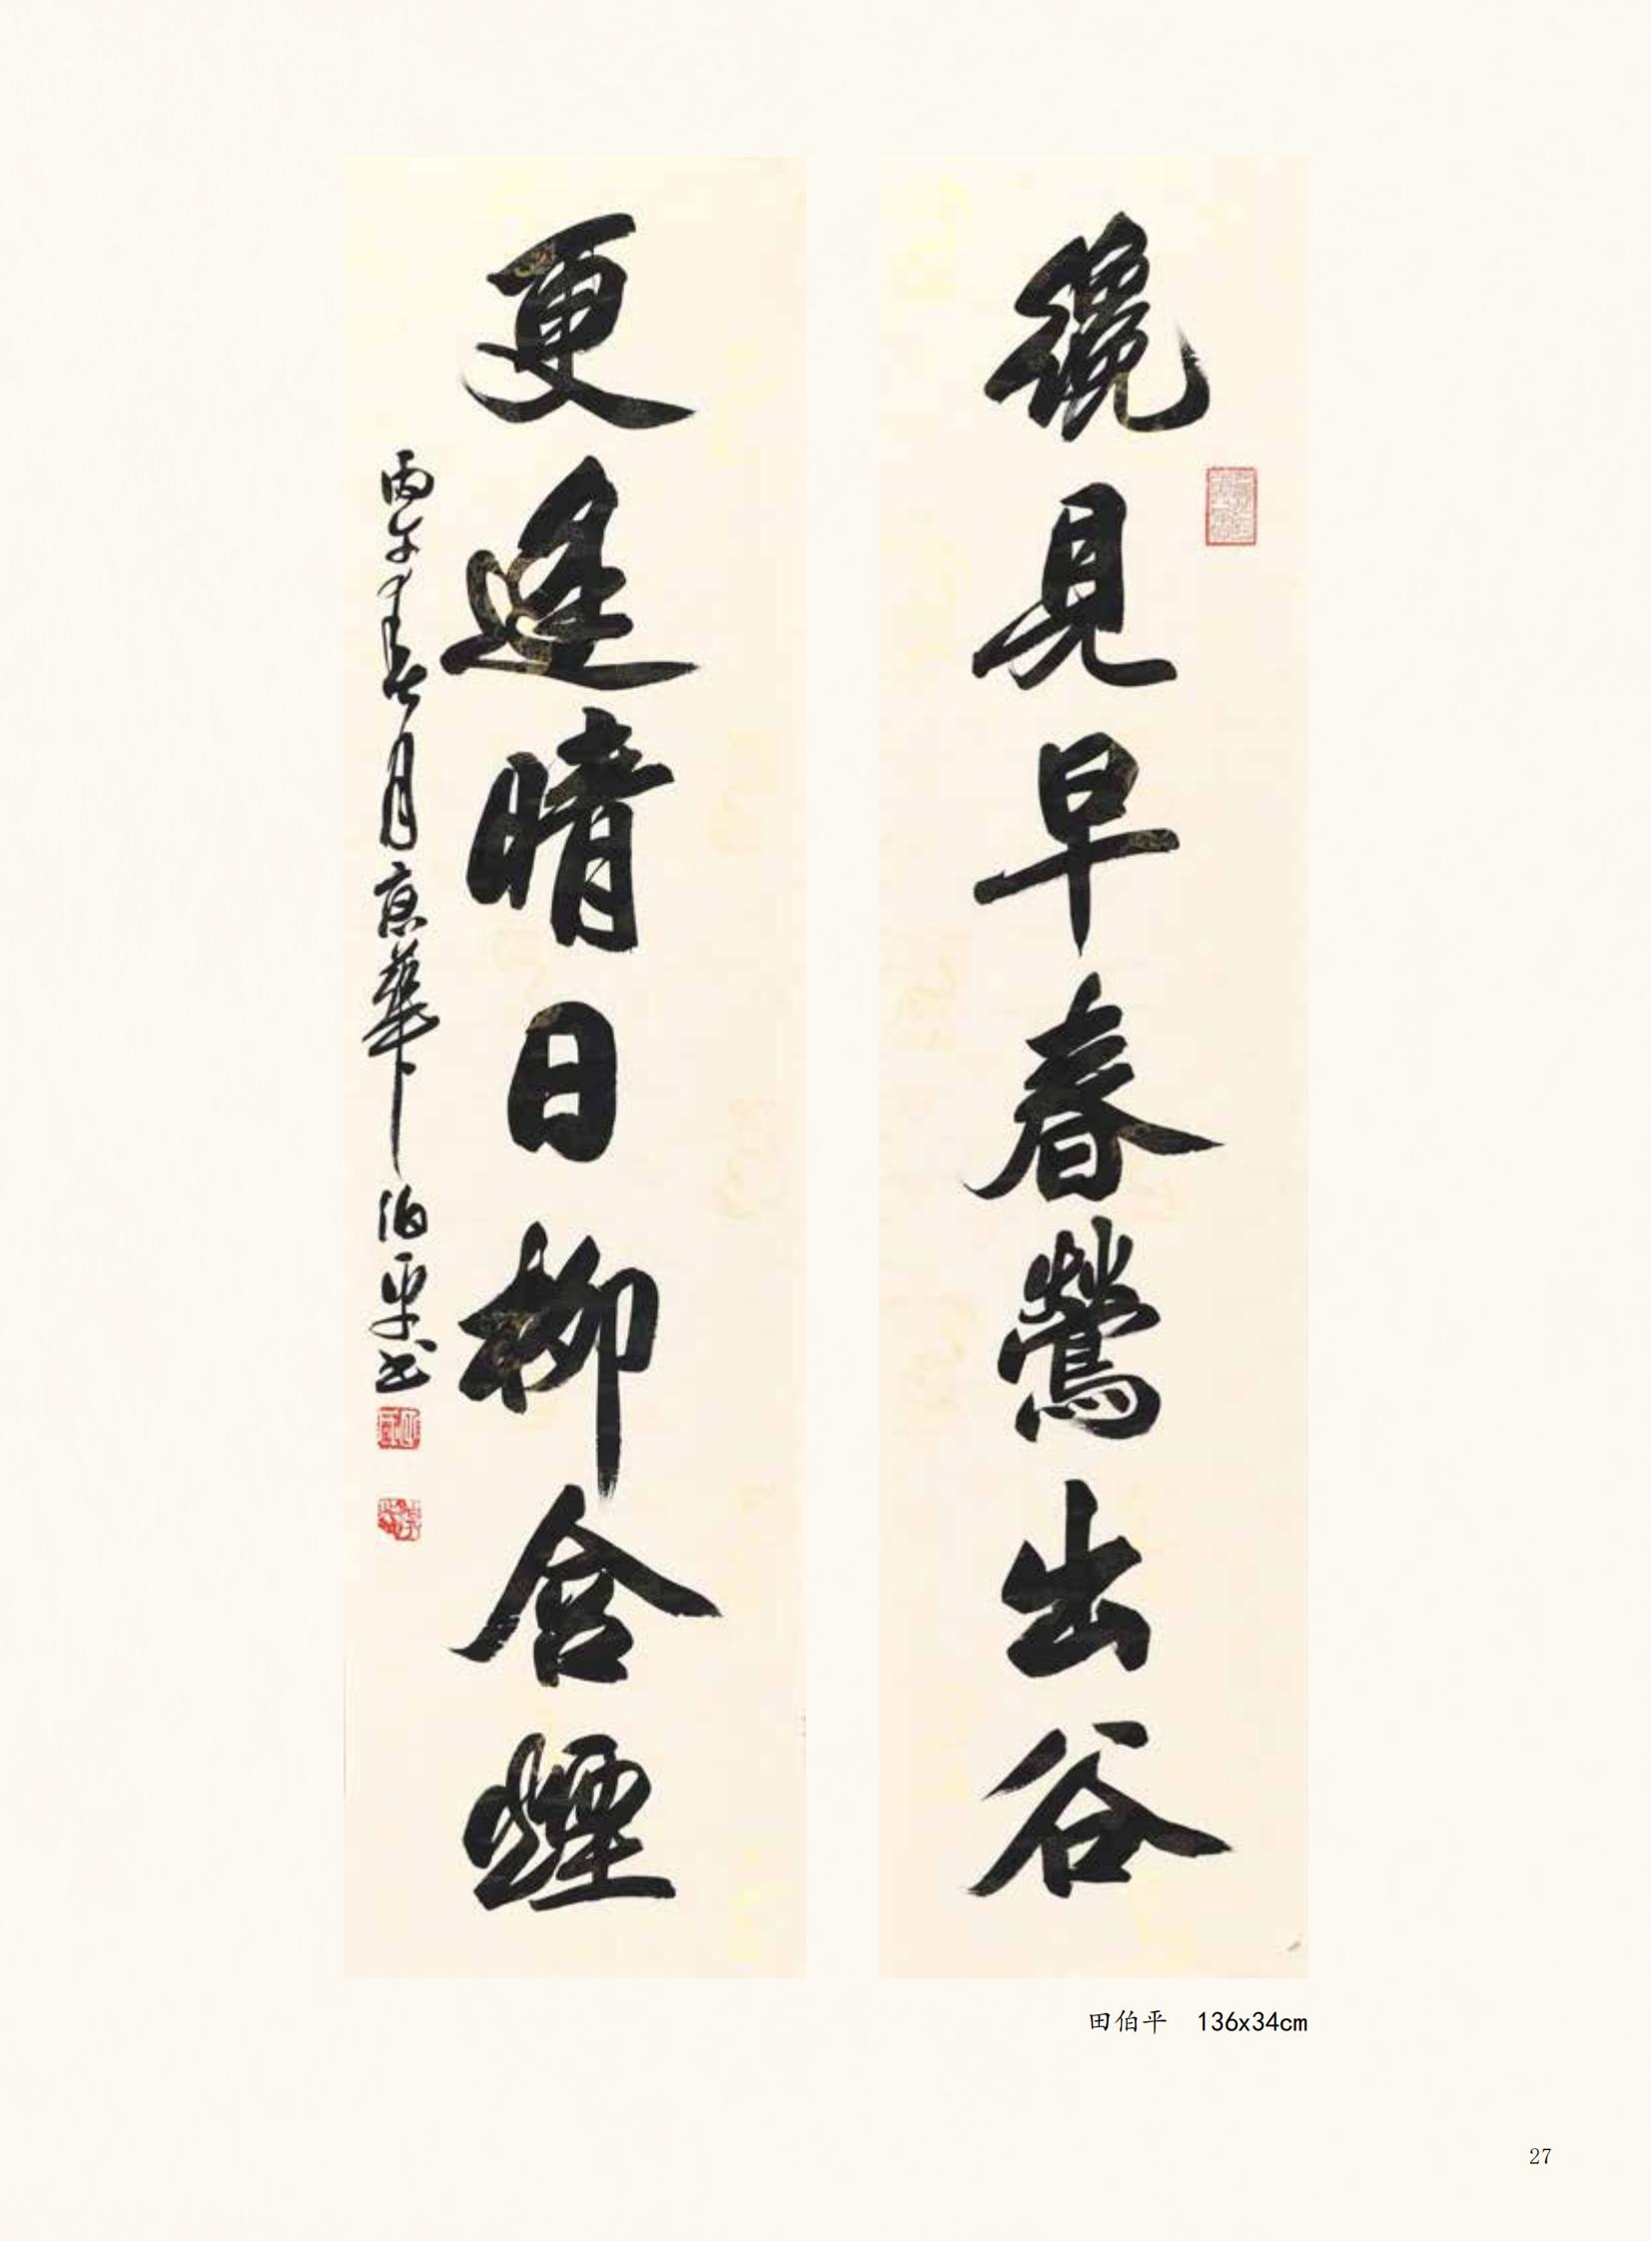 纔見早春鶯出谷
更逢晴日柳含煙
丙午年春月京華伯平书
田伯平 136x34cm
27